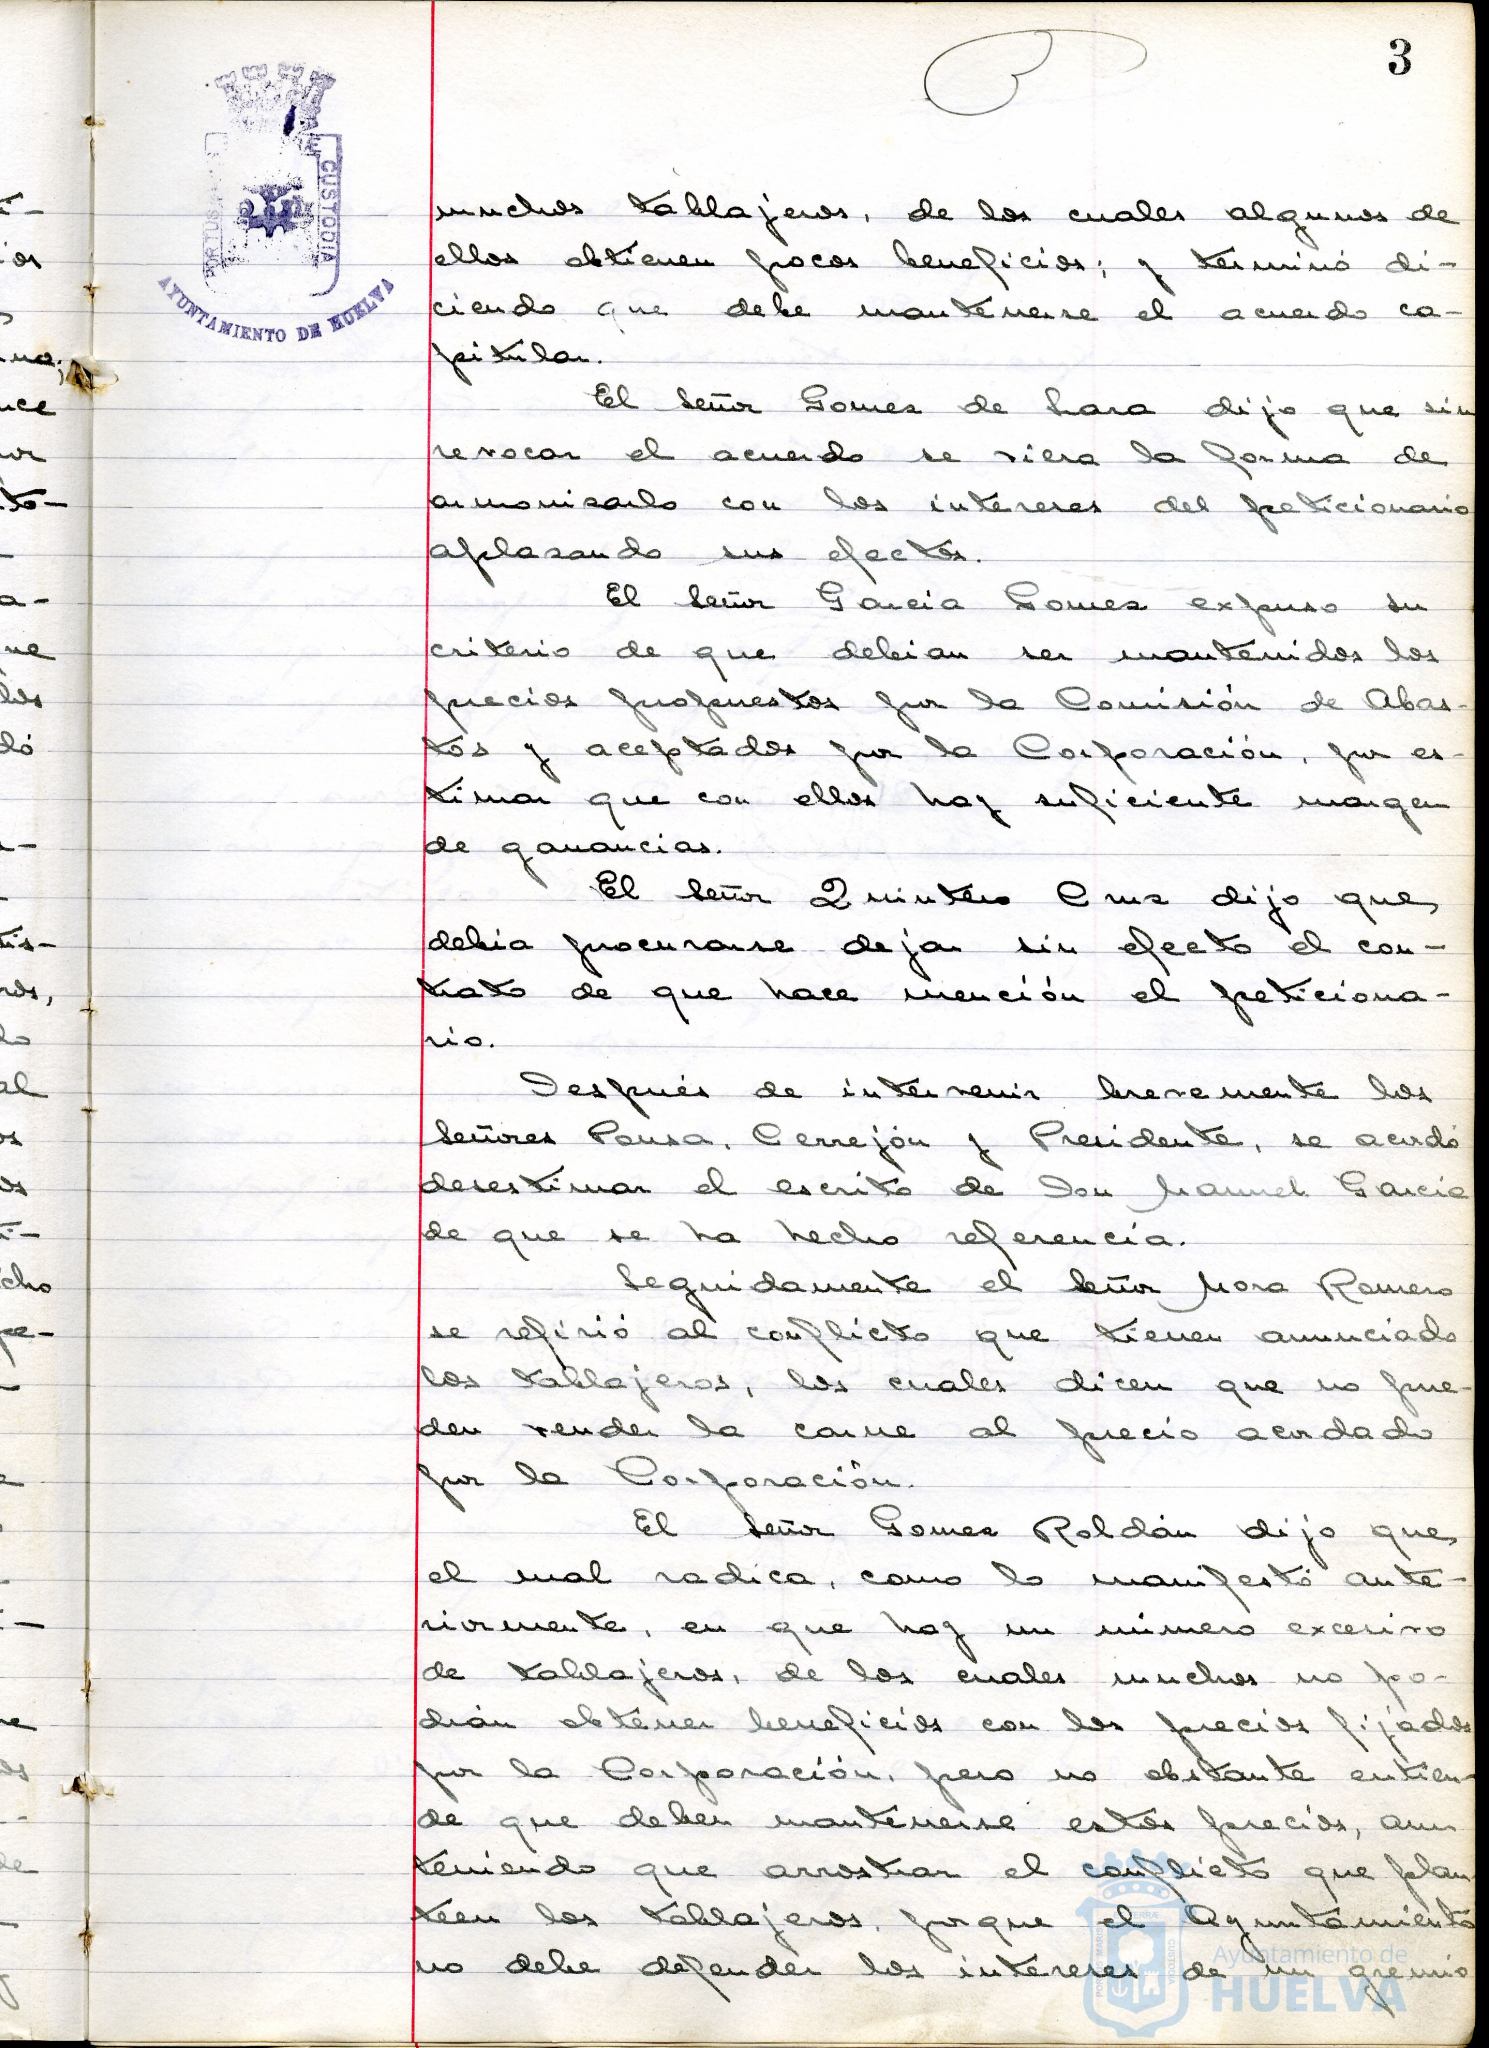 3
3
PORTUS
CUSTODIA
AYUNTAMIENTO DE HUELVA
muchos tablajeros, de los cuales algunos de
ellos obtienen pocos beneficios; y terminó di-
ciendo que debe mantenerse el acuerdo ca-
pitular.
El Señor Gomez de Lara dijo que sin
revocar el acuerdo se viera la forma de
armonizarlo con los intereses del peticionario
aplazando sus efectos.
El Señor García Gomez expuso su
criterio de que debian ser mantenidos los
precios propuestos por la Comisión de Abas-
tos y aceptados por la Corporación, por es-
timar que con ellos hay suficiente margen
de ganancias.
El Señor Quintero Cruz dijo que
debia procurarse dejar sin efecto el con-
trato de que hace mención el peticiona-
rio.
Después de intervenir brevemente los
Señores Pousa, Cerrejón y Presidente, se acordó
desestimar el escrito de Don Manuel García
de que se ha hecho referencia.
Seguidamente el Señor Mora Romero
se refirió al conflicto que tienen anunciado
los tablajeros, los cuales dicen que no pue-
den vender la carne al precio acordado
por la Corporación.
El Señor Gomez Roldán dijo que
el mal radica, como lo manifestó ante-
riormente, en que hay un número excesivo
de tablajeros, de los cuales muchos no po-
drán obtener beneficios con los precios fijados
por la Corporación, pero no obstante entien-
de que deben mantenerse estos precios, aun
teniendo que arrostrar el conflicto que plan
teen los tablajeros, porque el Ayuntamiento
no debe defender los intereses de un gremio
Ayuntamiento de
HUELVA